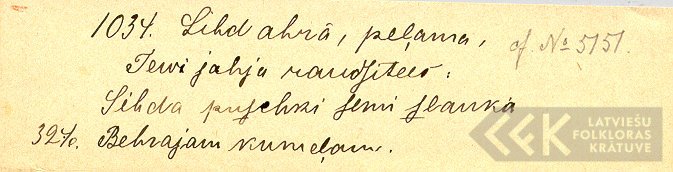 1034. Lihd ahrâ, peļama, cf. № 5151.
Tewi jahja raudſitees:
Sihda puſchki ſemi ſlauka
3270. Behrajam kumeļam.
LATVIEŠU
FOLKLORAS
KRĀTUVE